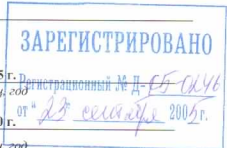 ЗАРЕГИСТРИРОВАНО
5 г.
Регистрационный № Д-05-0246
год
от "23" сентября 2005 г.
0 г.
год